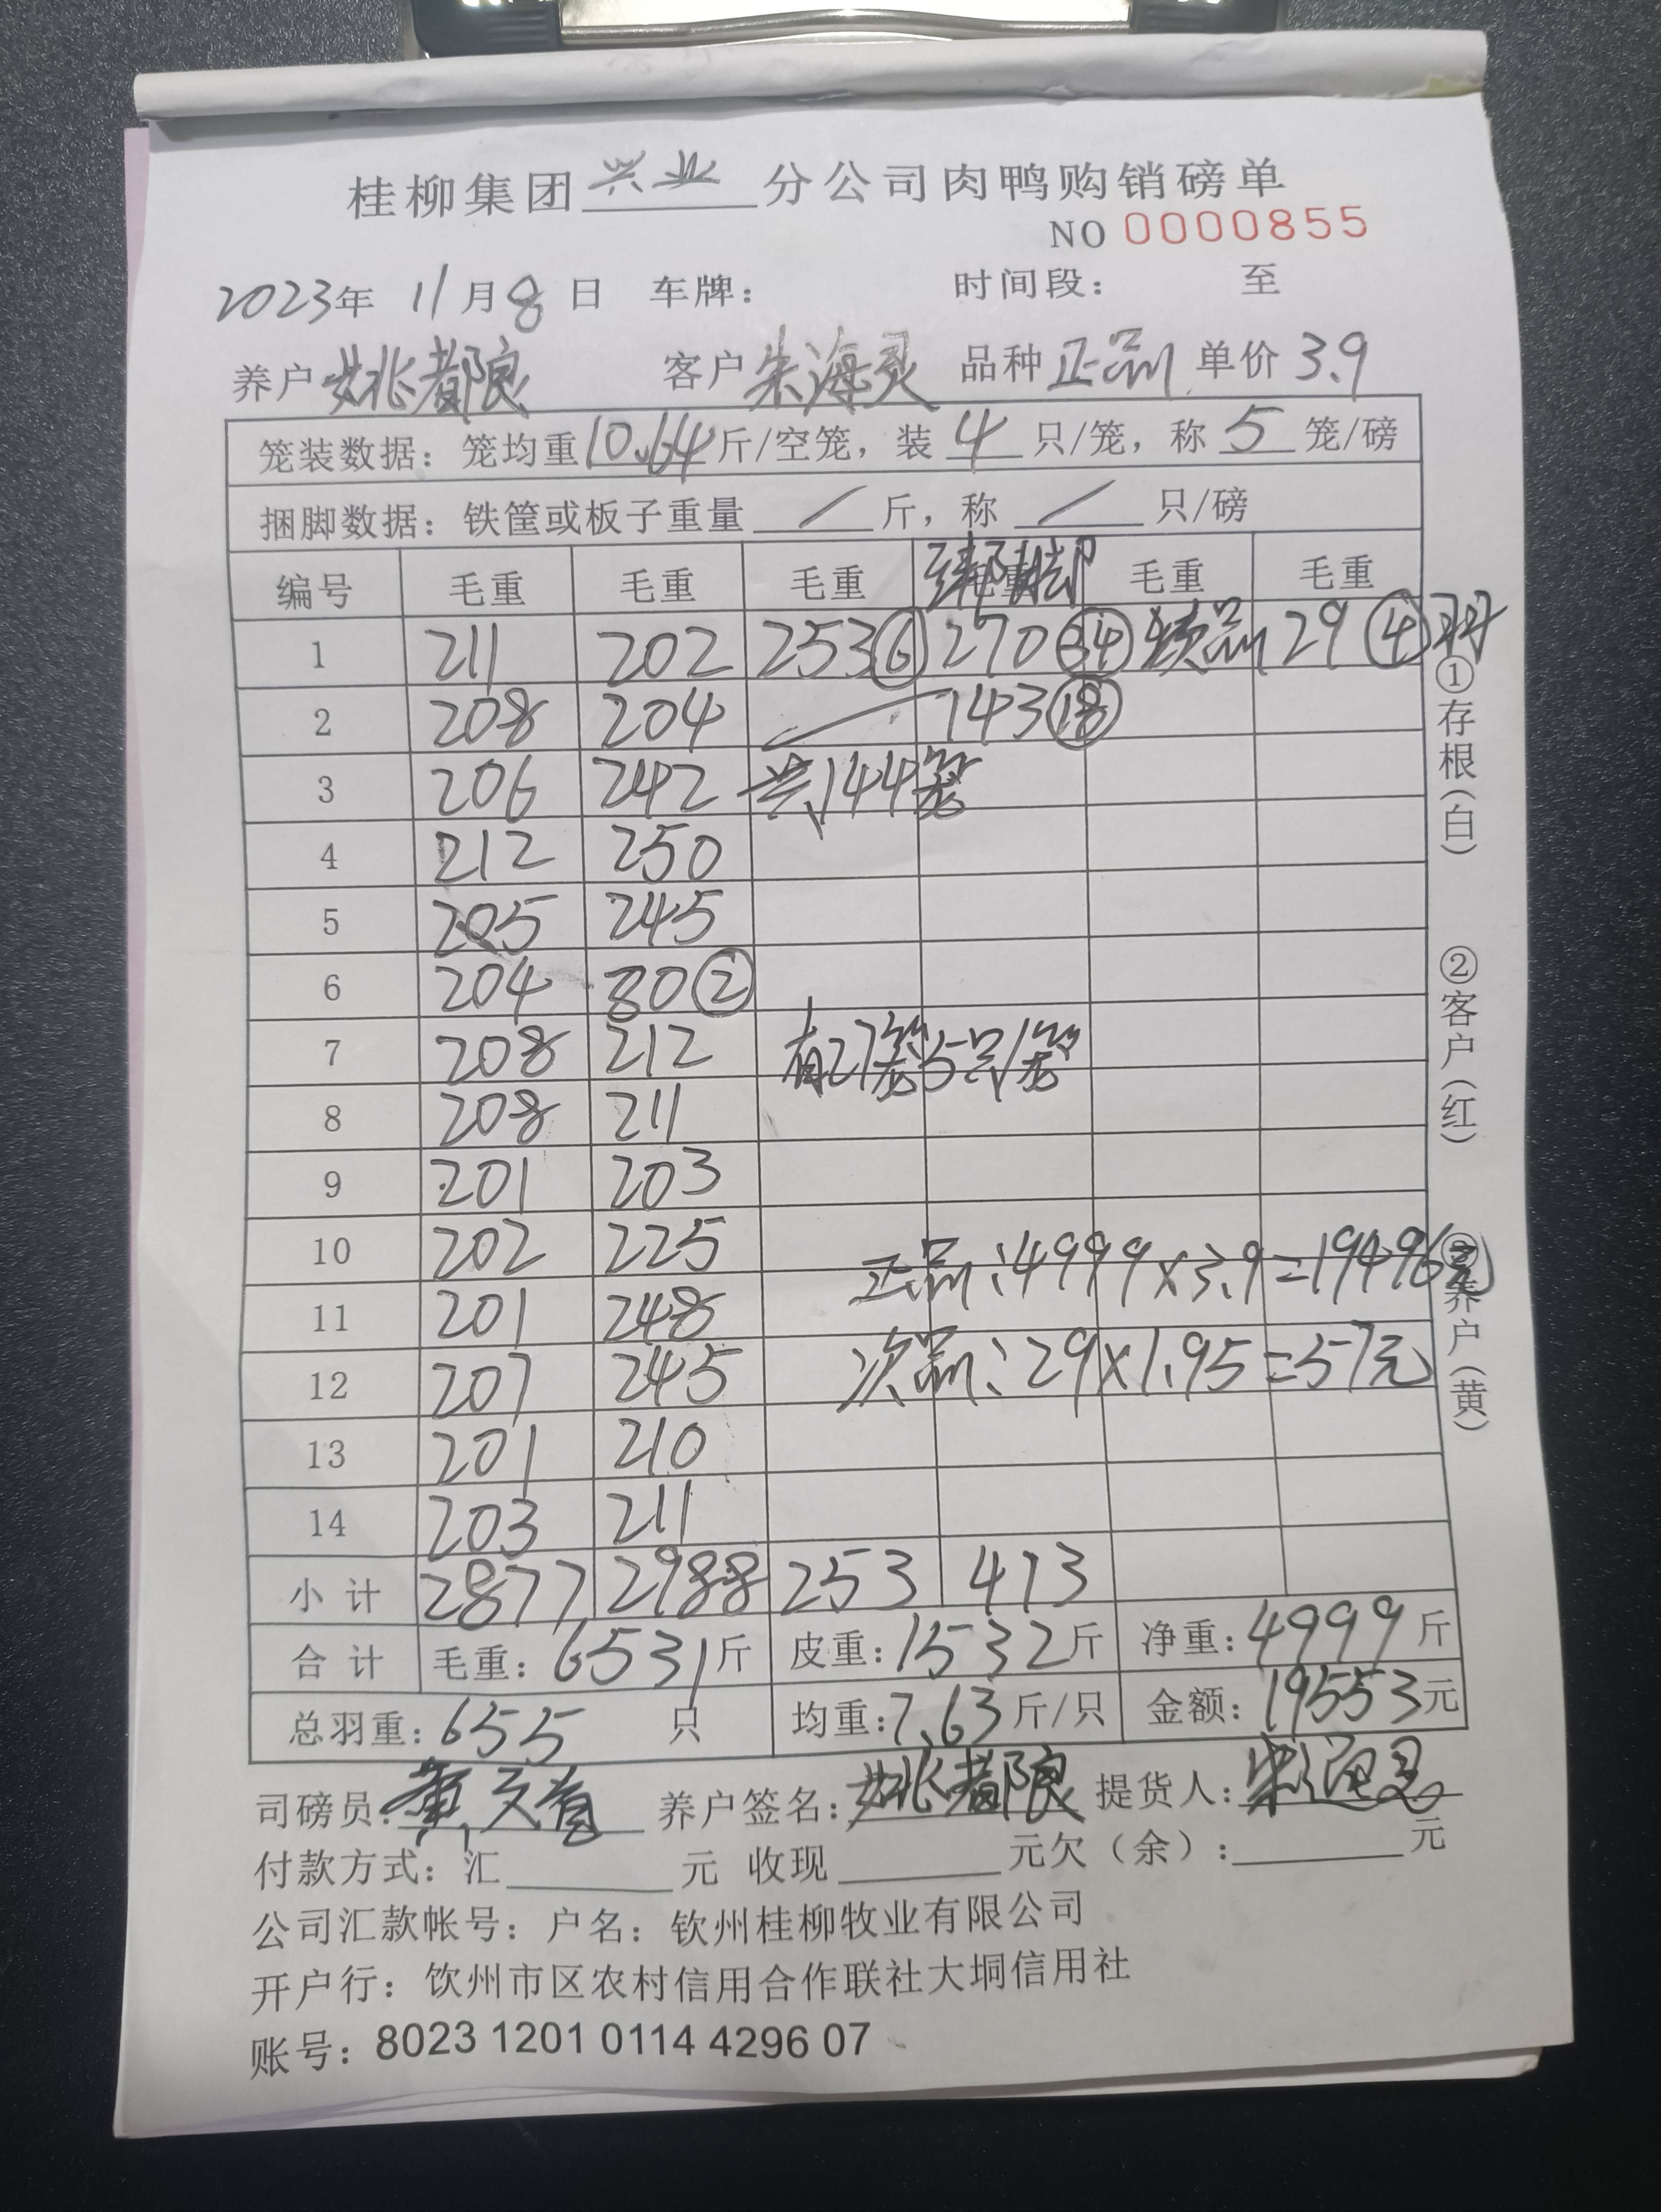 桂柳集团兴业分公司肉鸭购销磅单
NO 0000855
2023年 11月8日 车牌： 时间段： 至
养户 姚都良 客户 朱海灵 品种 正品 单价 3.9
笼装数据：笼均重10.64斤/空笼，装 4 只/笼，称 5 笼/磅
捆脚数据：铁筐或板子重量 / 斤，称 / 只/磅
编号 毛重 毛重 毛重 绑脚 毛重 毛重
1 211 202 253⑥ 270㉞ 次品 29 ④羽
2 208 204 / 143⑱
3 206 242 共144笼
4 212 250
5 205 245
6 204 80②
7 208 212 有27笼5只/笼
8 208 211
9 201 203
10 202 225 正品：4999×3.9=19496元
11 201 248
12 207 245 次品：29×1.95=57元
13 201 210
14 203 211
小计 2877 2988 253 413
合计 毛重：6531斤 皮重：1532斤 净重：4999斤
总羽重：655 只 均重：7.63斤/只 金额：19553元
司磅员： 养户签名：姚都良 提货人：朱海灵
付款方式：汇 元 收现 元欠（余）： 元
公司汇款帐号：户名：钦州桂柳牧业有限公司
开户行：饮州市区农村信用合作联社大垌信用社
账号：8023 1201 0114 4296 07
①存根（白）
②客户（红）
③养户（黄）